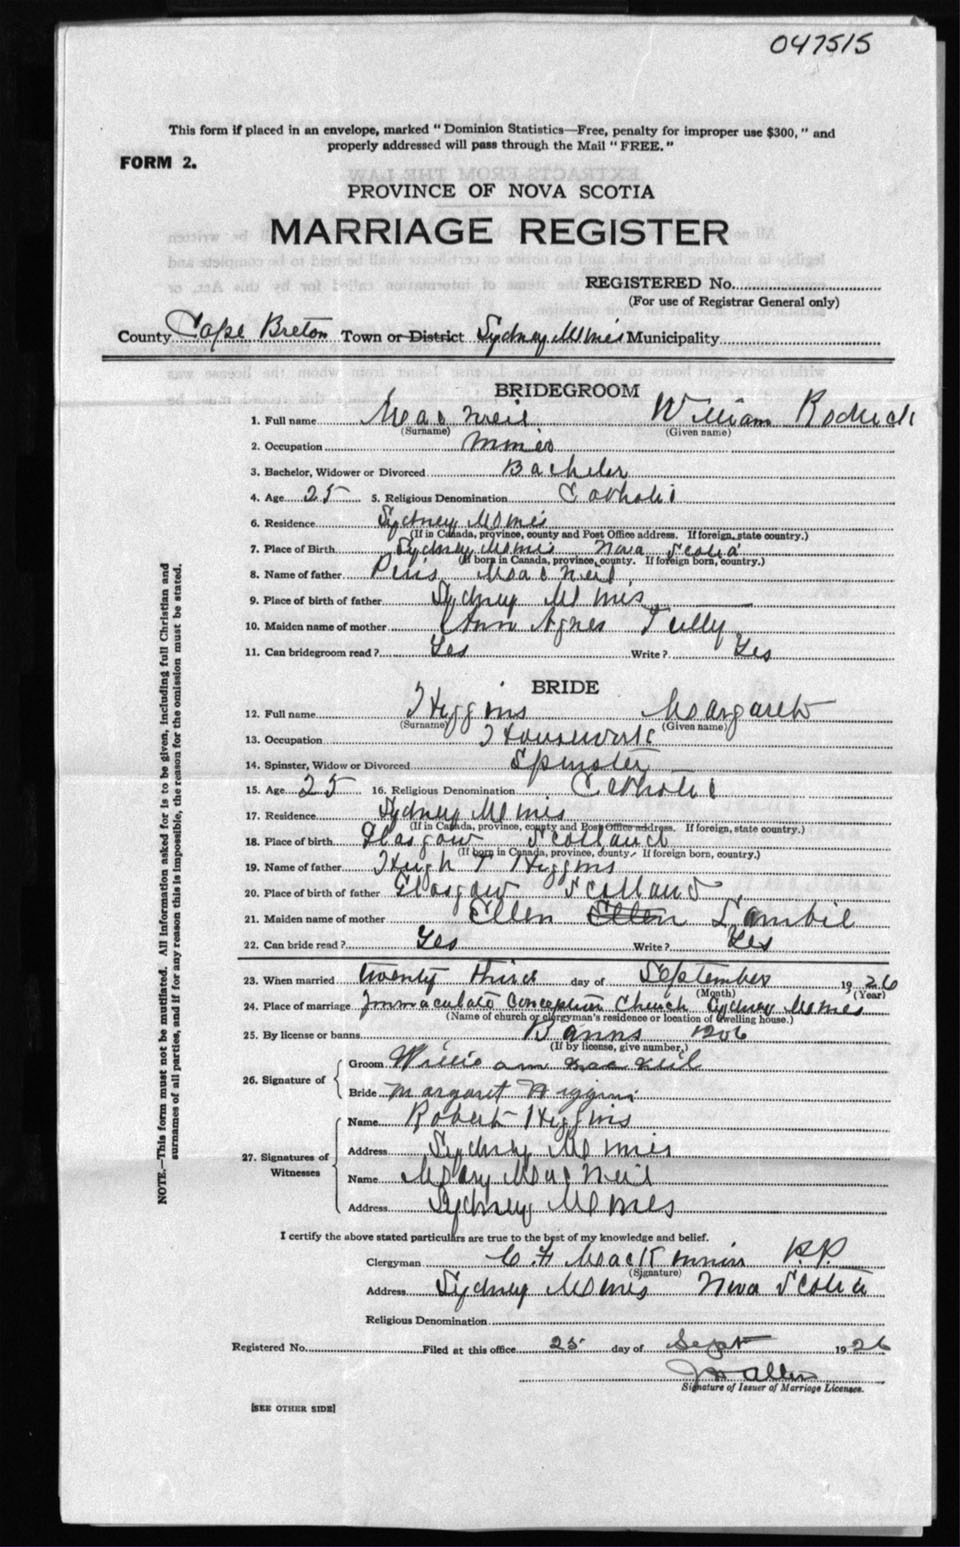 047515
This form if placed in an envelope, marked "Dominion Statistics—Free, penalty for improper use $300," and
properly addressed will pass through the Mail "FREE."
FORM 2.
PROVINCE OF NOVA SCOTIA
MARRIAGE REGISTER
REGISTERED No.
(For use of Registrar General only)
County Cape Breton Town or District Sydney Mines Municipality
BRIDEGROOM
1. Full name MacNeil William Rodrick
(Surname) (Given name)
2. Occupation Miner
3. Bachelor, Widower or Divorced Bachelor
4. Age 25 5. Religious Denomination Catholic
6. Residence Sydney Mines
(If in Canada, province, county and Post Office address. If foreign, state country.)
7. Place of Birth Sydney Mines Nova Scotia
(If born in Canada, province, county. If foreign born, country.)
8. Name of father Pius MacNeil
9. Place of birth of father Sydney Mines
10. Maiden name of mother Ann Agnes Tully
11. Can bridegroom read? Yes Write? Yes
BRIDE
12. Full name Higgins Margaret
(Surname) (Given name)
13. Occupation Housework
14. Spinster, Widow or Divorced Spinster
15. Age 25 16. Religious Denomination Catholic
17. Residence Sydney Mines
(If in Canada, province, county and Post Office address. If foreign, state country.)
18. Place of birth Glasgow Scotland
(If born in Canada, province, county. If foreign born, country.)
19. Name of father Hugh T Higgins
20. Place of birth of father Glasgow Scotland
21. Maiden name of mother Ellen Ellen
22. Can bride read? Yes Write? Yes
23. When married twenty third day of September 1926
(Month) (Year)
24. Place of marriage Immaculate Conception Church Sydney Mines
(Name of church or clergyman's residence or location of dwelling house.)
25. By license or banns Banns 1206
(If by license, give number.)
26. Signature of
Groom William MacNeil
Bride Margaret Higgins
27. Signatures of Witnesses
Name Robert Higgins
Address Sydney Mines
Name Mary MacNeil
Address Sydney Mines
I certify the above stated particulars are true to the best of my knowledge and belief.
Clergyman C F MacKinnon P.P.
(Signature)
Address Sydney Mines Nova Scotia
Religious Denomination
Registered No. Filed at this office 25 day of Sept 1926
Allen
Signature of Issuer of Marriage Licenses.
[SEE OTHER SIDE]
NOTE.—This form must not be mutilated. All information asked for is to be given, including full Christian and
surnames of all parties, and if for any reason this is impossible, the reason for the omission must be stated.